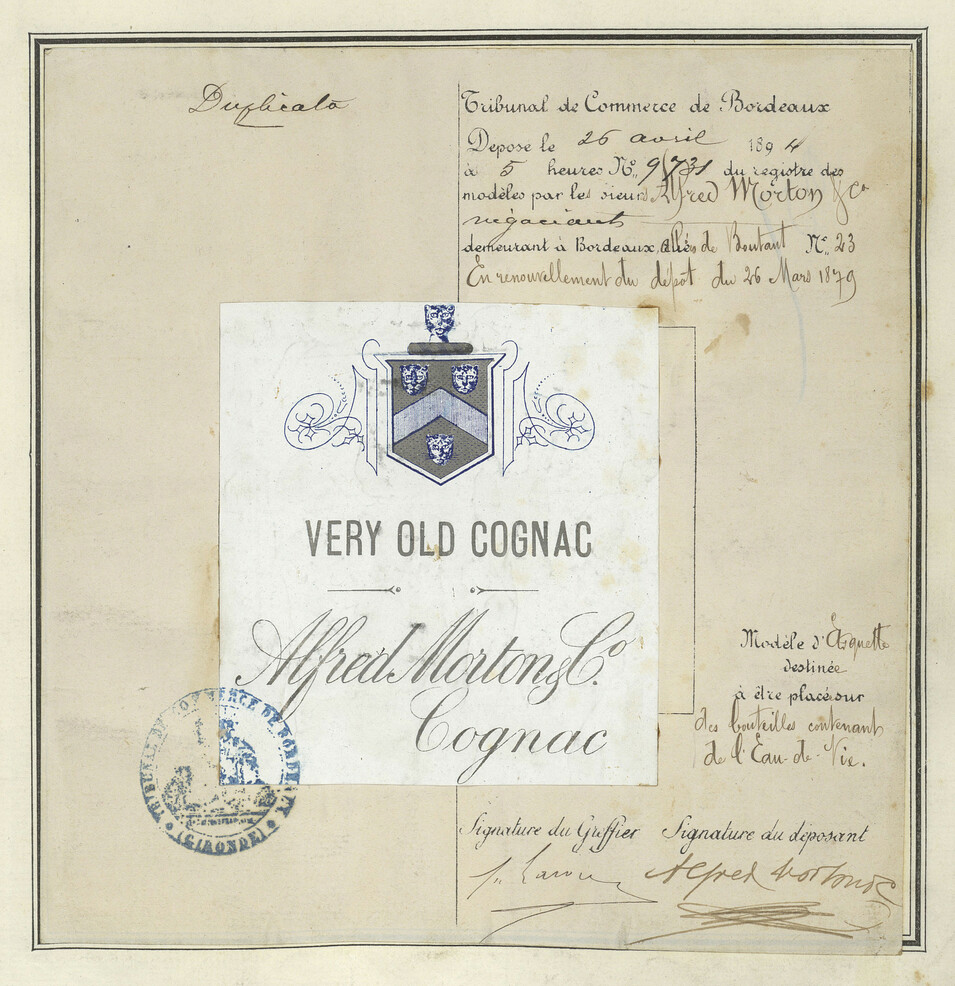 Duplicata
Tribunal de Commerce de Bordeaux
Deposé le 26 avril 1894
à 5 heures No. 9731 du registre des
modèles par les sieurs Alfred Morton & Co
négociants
demeurant à Bordeaux, Allées de Boutaut No. 23
En renouvellement du dépôt du 26 Mars 1879
VERY OLD COGNAC
Alfred Morton & Co.
Cognac
Modèle d'Etiquette
destinée
à être placé sur
des bouteilles contenant
de l'Eau-de-Vie.
TRIBUNAL DE COMMERCE DE BORDEAUX
(GIRONDE)
Signature du Greffier Signature du déposant
Alfred Morton & Co